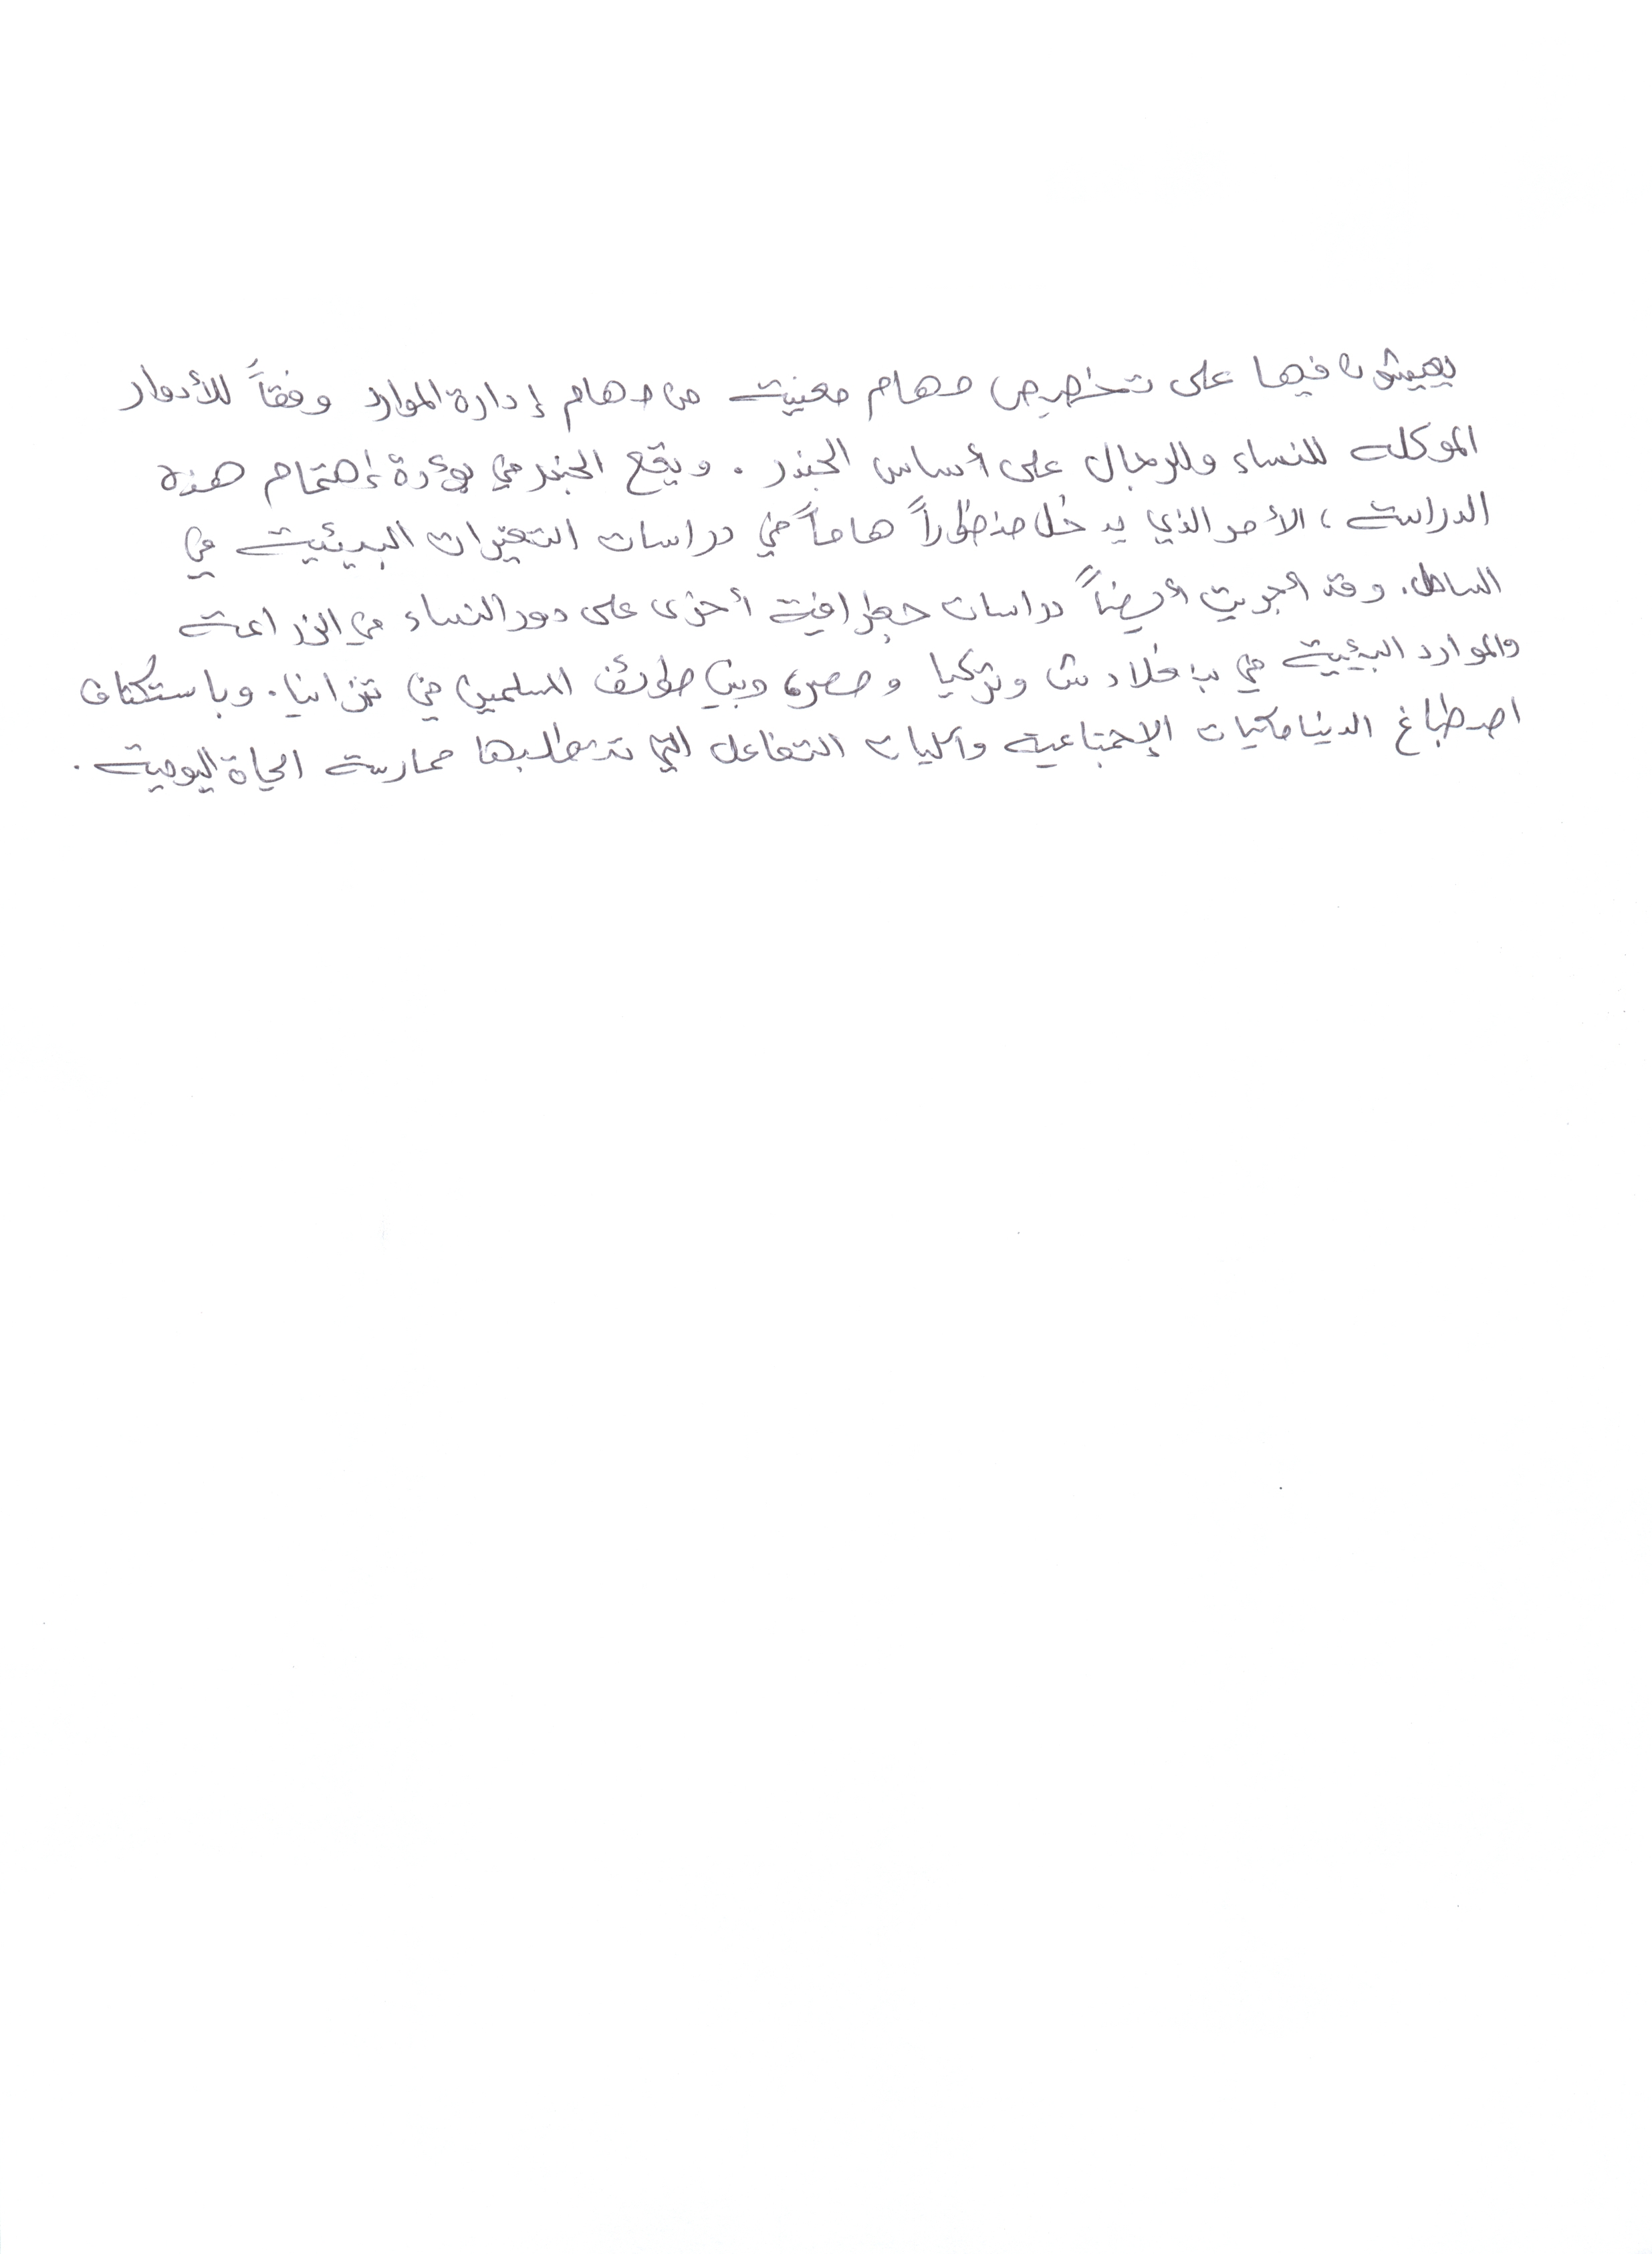 يعيشون فيها على تخصيص مهام معينة من مهام إدارة الموارد وفقاً للأدوار
الموكله للنساء وللرجال على أساس الجندر . ويقع الجندر في بؤرة إهتمام هذه
الدراسة ، الأمر الذي يدخل منظوراً هاماً في دراسات التغيرات البيئية في
الساحل . وقد أجريت أيضاً دراسات جغرافية أخرى على دور النساء في الزراعة
والموارد البيئية في بنغلادش وتركيا ومصر، وبين طوائف المسلمين في تنزانيا . وباستكشاف
اصطباغ الديناميكيات الإجتماعية وآليات التفاعل التي تتطلبها ممارسة الحياة اليومية .